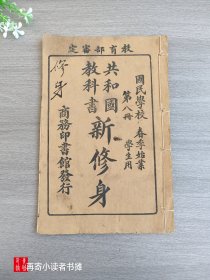 教育部審定
國民學校 春季始業
第八冊 學生用
共和國
教科書
新修身
商務印書館發行
修身
再寄小读者书摊